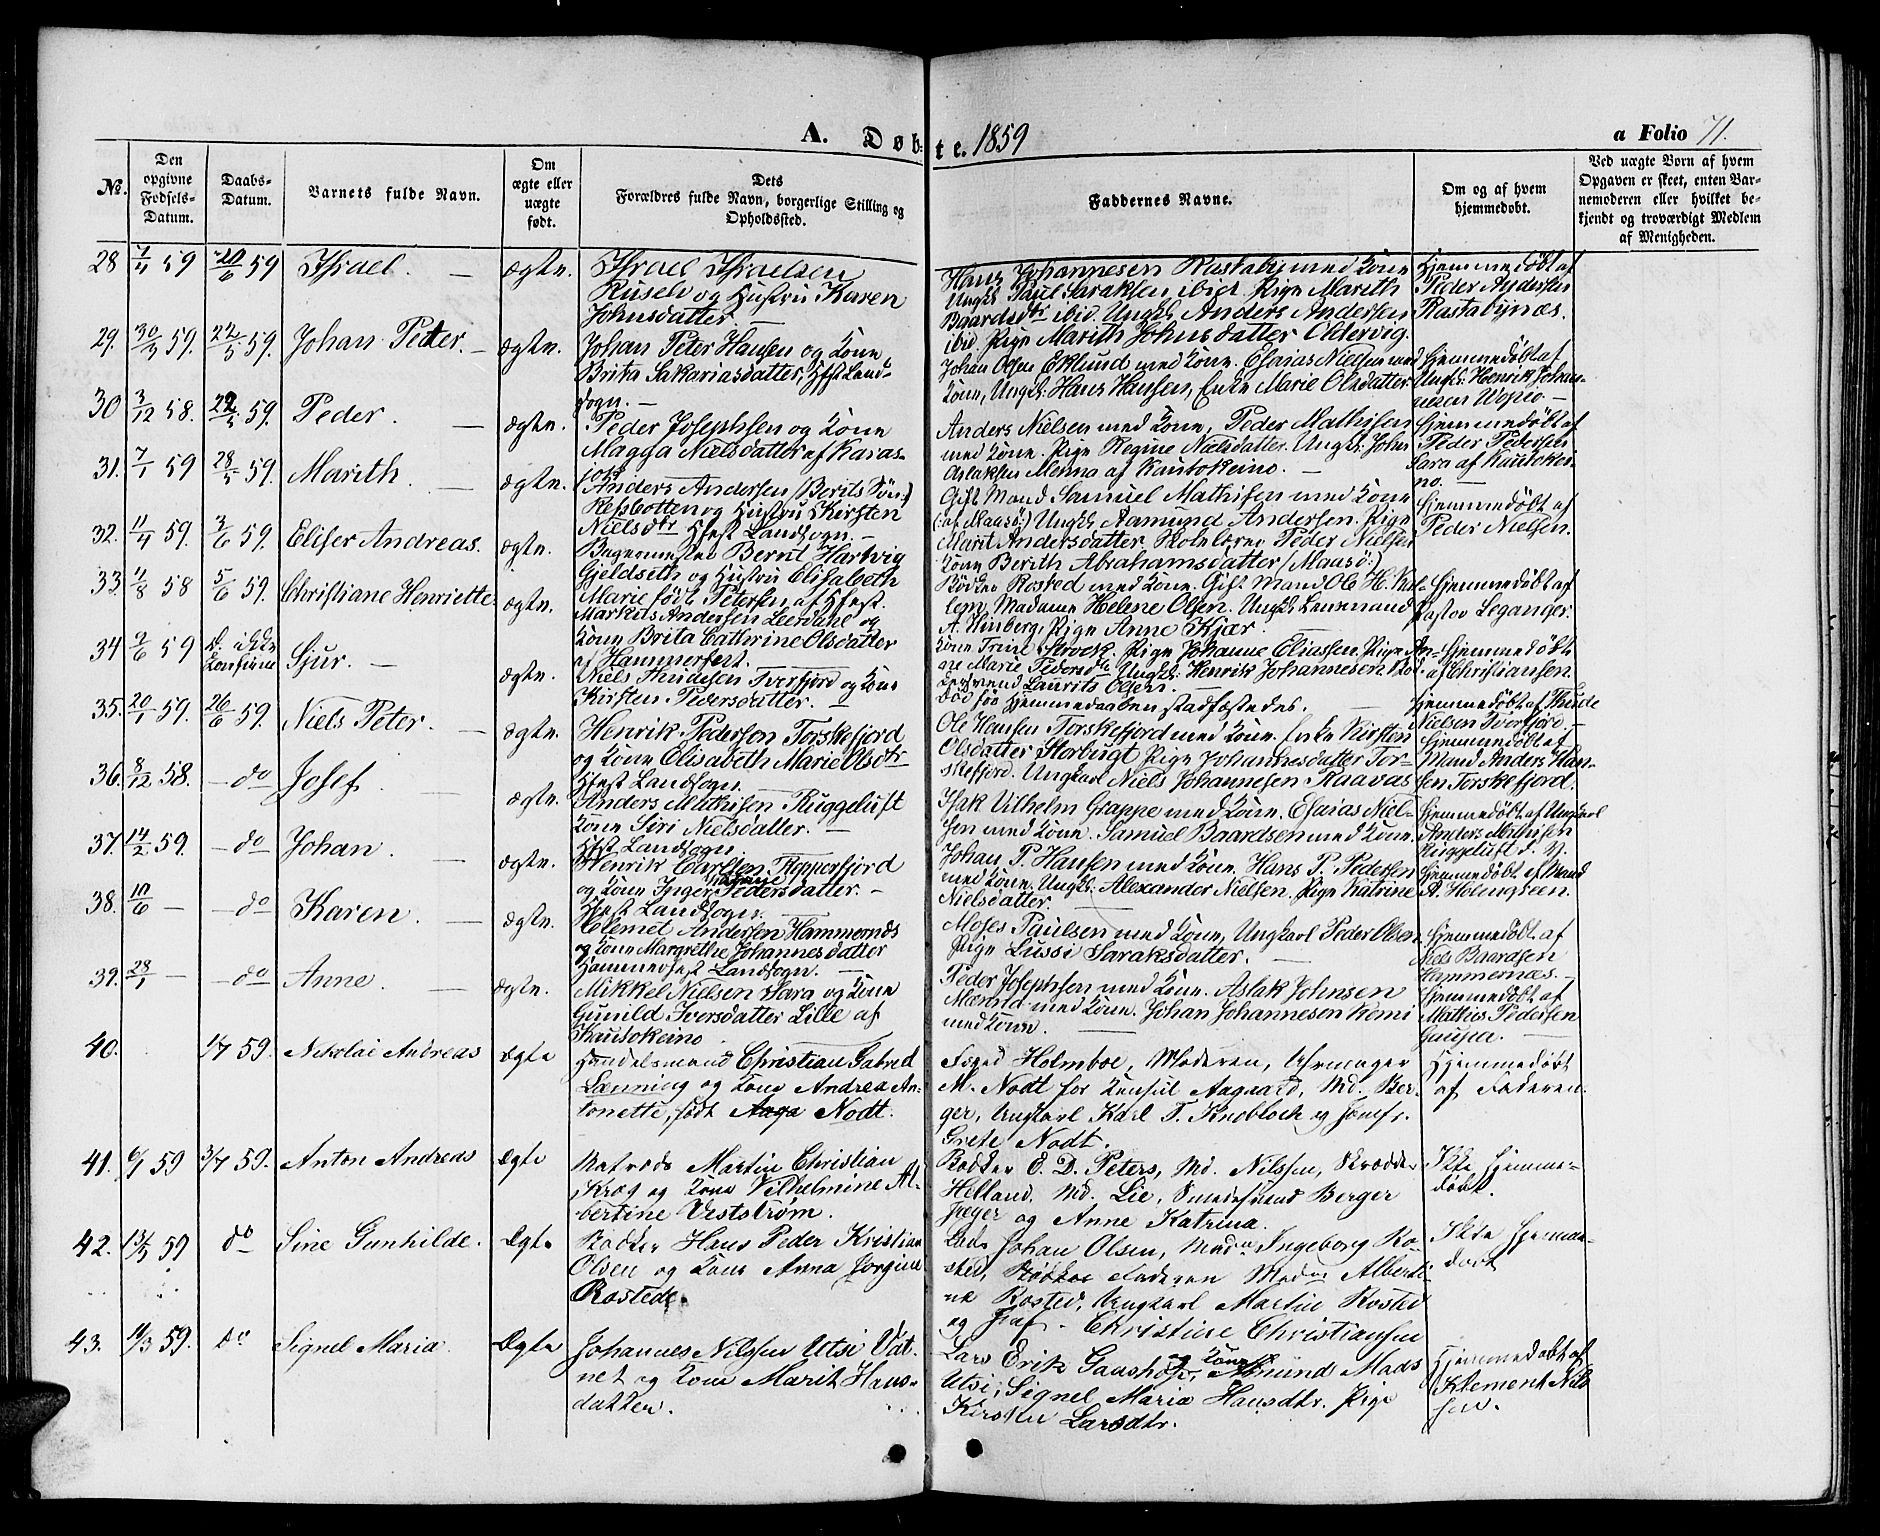 A. Døb-
te. 1859
a Folio 71.
No.
Den opgivne Fødsels-Datum.
Daabs-Datum.
Barnets fulde Navn.
Om ægte eller uægte født.
Dets Forældres fulde Navn, borgerlige Stilling og Opholdssted.
Faddernes Navne.
Om og af hvem hjemmedøbt.
Ved uægte Børn af hvem Opgaven er skeet, enten Barnemoderen eller hvilket bekjendt og troværdigt Medlem af Menigheden.
28 7/4 59 20/6 59 Israel. — ægte.
Israel Israelsen
Russelv og Hustru Karen
Johnsdatter —
Hans Johannesen Rastaby med Kone
Ungk. Paul Saraksen ibid. Pige Marith
Baardsdtr ibid. Ungk. Anders Andersen
ibid. Pige Marith Johnsdatter Oldervig.
Hjemmedøbt af
Peder Andersen
Rastabynæs.
29. 30/3 59. 22/5 59. Johan Peter. — ægte.
Johan Peter Hansen og Kone
Brita Sakariasdatter, Hfest Land-
sogn. —
Johan Olsen Eklund med Kone. Esaias Nielsen med
Kone, Ungk: Hans Hansen, Enke Marie Olsdatter
Hjemmedøbt af
Ungk: Henrik Johan-
nesen Wopio —
30 3/12 58. 22/5 59. Peder. — ægte.
Peder Josephsen og Kone
Magga Nielsdatter af Karas-
jok.
Anders Nielsen med Kone, Peder Mathisen
med Kone. Pige Regine Nielsdatter. Ungk: John
Aslaksen Menna af Kautokeino. —
Hjemmedøbt af
Peder Pedersen
Sara af Kautokei-
no. —
31. 7/1 59 28/5 59. Marith. — ægte.
Anders Andersen (Berits Søn:)
Repsbotten og Hustru Kirsten
Nielsdtr Hfest Landsogn. —
Gift Mand Samuel Mathisen med Kone
(: af Maasø:) Ungk: Aamund Andersen. Pige
Marit Andersdatter. Skolelærer Peder Nielsen
Kone Berith Abrahamsdatter (Maasø:)
Hjemmedøbt af
Peder Nielsen.
32. 11/4 59. 3/6 59. Eliser Andreas. ægte.
Bagermester Bernt Hartvig
Gjeldseth og Hustru Elisabeth
Marie født Petersen af Hfest.
Bødker Rosted med Kone. Gift Mand Ole H. Kil-
lem, Madame Helene Olsen. Ungk: Lensmand
A. Winberg, Pige Anne Kjær.
Hjemmedøbt af
Pastor Leganger.
33. 11/8 58 5/6 59. Christiane Henriette ægte.
Markus Andersen Leerdahl og
Kone Brita Cathrine Olsdatter
af Hammerfest.
Kone Trine Strøck. Pige Johanne Eliassen. Pige An-
ne Marie Pedersdtr Ungk: Henrik Johannesen.
Laurits Olsen. —
Hjemmedøbt
af Christiansen.
34 2/6 59 Sjur. — ægte.
Niels Knudsen Tverfjord og Kone
Kirsten Pedersdatter. —
Død før Hjemmedaaben stadfæstedes. —
Hjemmedøbt af Knude
Nielsen Tverfjord —
35. 20/1 59. 26/6 59. Niels Peter. — ægte.
Henrik Pedersen Torskefjord
og Kone Elisabeth Marie Olsdtr
Hfest Landsogn.
Ole Hansen Torskefjord med Kone. Enke Kirsten
Olsdatter Storbugt Pige Johannesdatter Tor-
skefjord. Ungkarl Niels Johannesen Raavas
Hjemmedøbt af
Mand Anders Han-
sen Torskefjord.
36. 8/12 58. — do Josef. — ægte.
Anders Mathisen Ruggeluft
Kone Siri Nielsdatter. —
Hfst Landsogn.
Isak Vilhelm Grappe med Kone. Esaias Niel-
sen med Kone. Samuel Baardsen med Kone.
Hjemmedøbt af Ungkarl
Anders Mathisen
Ruggeluft
37. 14/2 59. — do Johan. — ægte.
Henrik Carlsen. Repperfjord
og Kone Inger Pedersdatter. —
Hfest Landsogn. —
Johan P. Hansen med Kone. Hans P. Pedersen
med Kone. Ungk: Alexander Nielsen. Pige Katrine
Nielsdatter.
Hjemmedøbt af Mand
A. Holmgreen.
38. 10/6 — — do Karen. — ægte.
Clemet Andersen Hammernæs
og Kone Margrethe Johannesdatter
Hammerfest Landsogn. —
Moses Paulsen med Kone, Ungkarl Peder Olsen.
Pige Lussi Saraksdatter. —
Hjemmedøbt af
Niels Baardsen
Hammernæs. —
39. 28/1 — — do Anne. — ægte.
Mikkel Nielsen Sara og Kone
Gunild Iversdatter Lille af
Kautokeino
Peder Josephsen med Kone. Aslak Johnsen
Mænna med Kone. Johan Johannesen Kemi
med Kone. —
Hjemmedøbt af
Mathis Pedersen
Gaupa. —
40. 1/7 59. Nikolai Andreas Ægte
Handelsmand Christian Gabriel
Lænning og Kone Andrea An-
tonette, født Nodt.
Foged Holmboe, Moderen,
M. Nodt for Konsul Aagaard, Md. Ber-
ger, Ungkarl Karl T. Knobloch og Jomfr.
Grete Nodt.
Hjemmedøbt
af Faderen.
41. 6/1 59 3/7 59. Anton Andreas Ægte
Matros Martin Christian
Krog og Kone Vilhelmine Al-
bertine Veststrøm.
Bødker O. D. Peters, Md. Nilssen, Skrædder
Helland, Md. Lie, Smedesvend Berger
Jæger og Anne Katrina.
Ikke hjemme-
døbt.
42. 13/5 59 do Sine Gunhilde. Ægte
Bødker Hans Peder Kristian
Olsen og Kone Anna Jørgine
Rostede.
Johan Olsen, Madm Ingeborg Ro-
sted, Faderen Madm Alberti-
ne Rosted, Ungkarl Martin Rosted
og Jfr. Christine Christiansen
Ikke hjemme-
døbt
43. 11/3 59. do Signel Maria. Ægte
Johannes Nilssen Utsi Vat-
net og Kone Marit Hans-
datter.
Lars Erik Gaashop og Kone, Amund Mads
Utsi, Signel Maria Hansdtr. Pige
Kirsten Larsdtr.
Hjemmedøbt af
Klement Nils
sen.